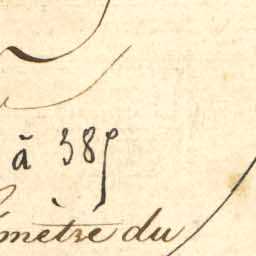 à 385
mètre du